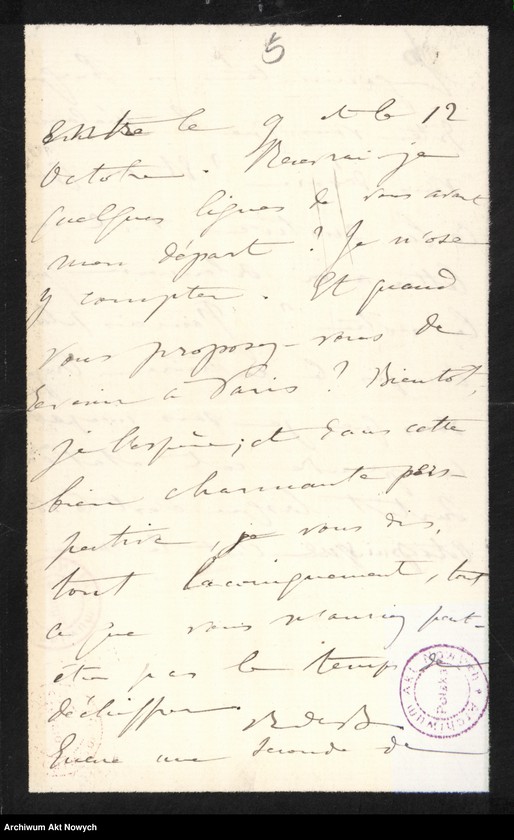 5
entre le 9 et le 12
Octobre. Recevrai-je
quelques lignes de vous avant
mon départ ? Je n'ose
y compter. Et quand
vous proposez-vous de
revenir à Paris ? Bientôt,
je l'espère ; et dans cette
bien charmante pers-
pective, je vous dis,
tout laconiquement, tout
ce que vous n'auriez peut-
être pas le temps de
déchiffrer
Encore une seconde de
ARCHIWUM AKT NOWYCH
Polska
Archiwum Akt Nowych